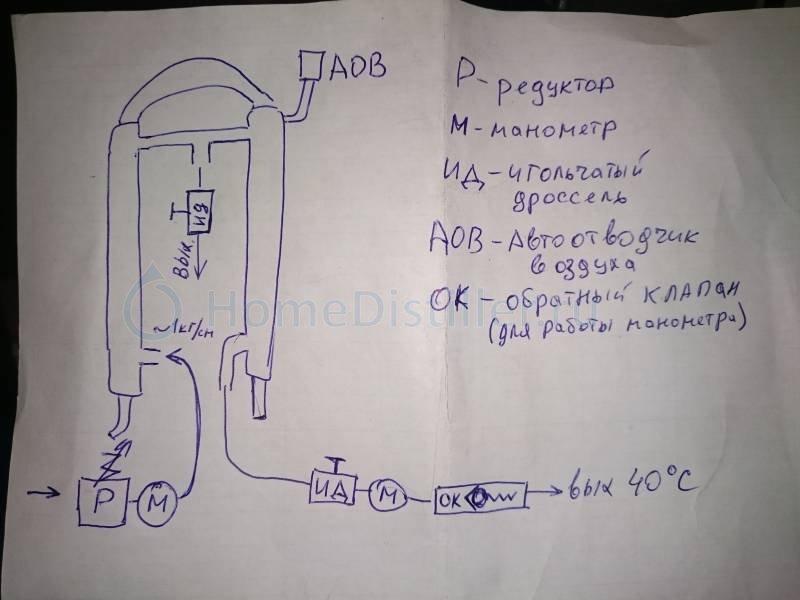 АОВ
ИД
Вых.
~1кг/см
Р
М
ИД
М
ОК
вых 40°С
Р-редуктор
М-манометр
ИД-игольчатый
дроссель
АОВ-Автоотводчик
воздуха
ОК-обратный клапан
(для работы манометра)
HomeDistiller.ru